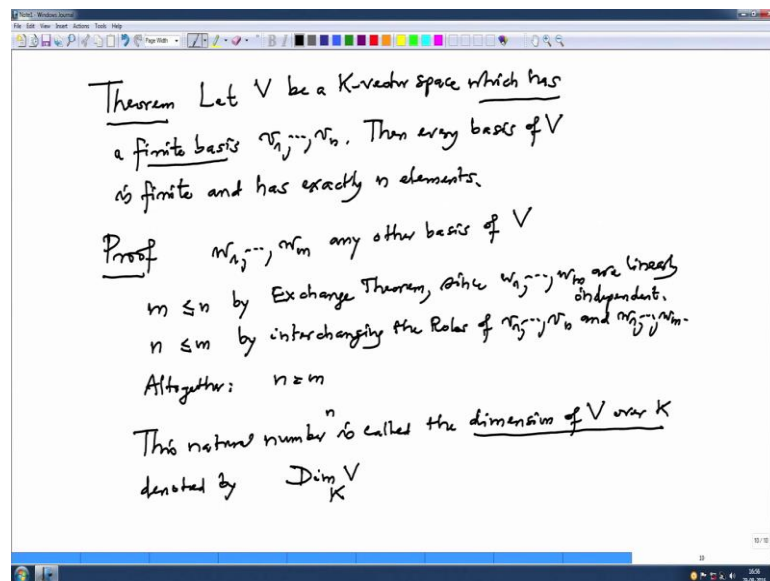 Note1 - Windows Journal
File Edit View Insert Actions Tools Help
Page Width
Theorem Let V be a K-vector space which has
a finite basis v₁,…,vₙ. Then every basis of V
is finite and has exactly n elements.
Proof w₁,…,wₘ any other basis of V
m ≤ n by Exchange Theorem, since w₁,…,wₘ are linearly
independent.
n ≤ m by interchanging the Roles of v₁,…,vₙ and w₁,…,wₘ.
Altogether: n = m
This natural number n is called the dimension of V over K
denoted by Dim_K V
10 / 10
19
16:56